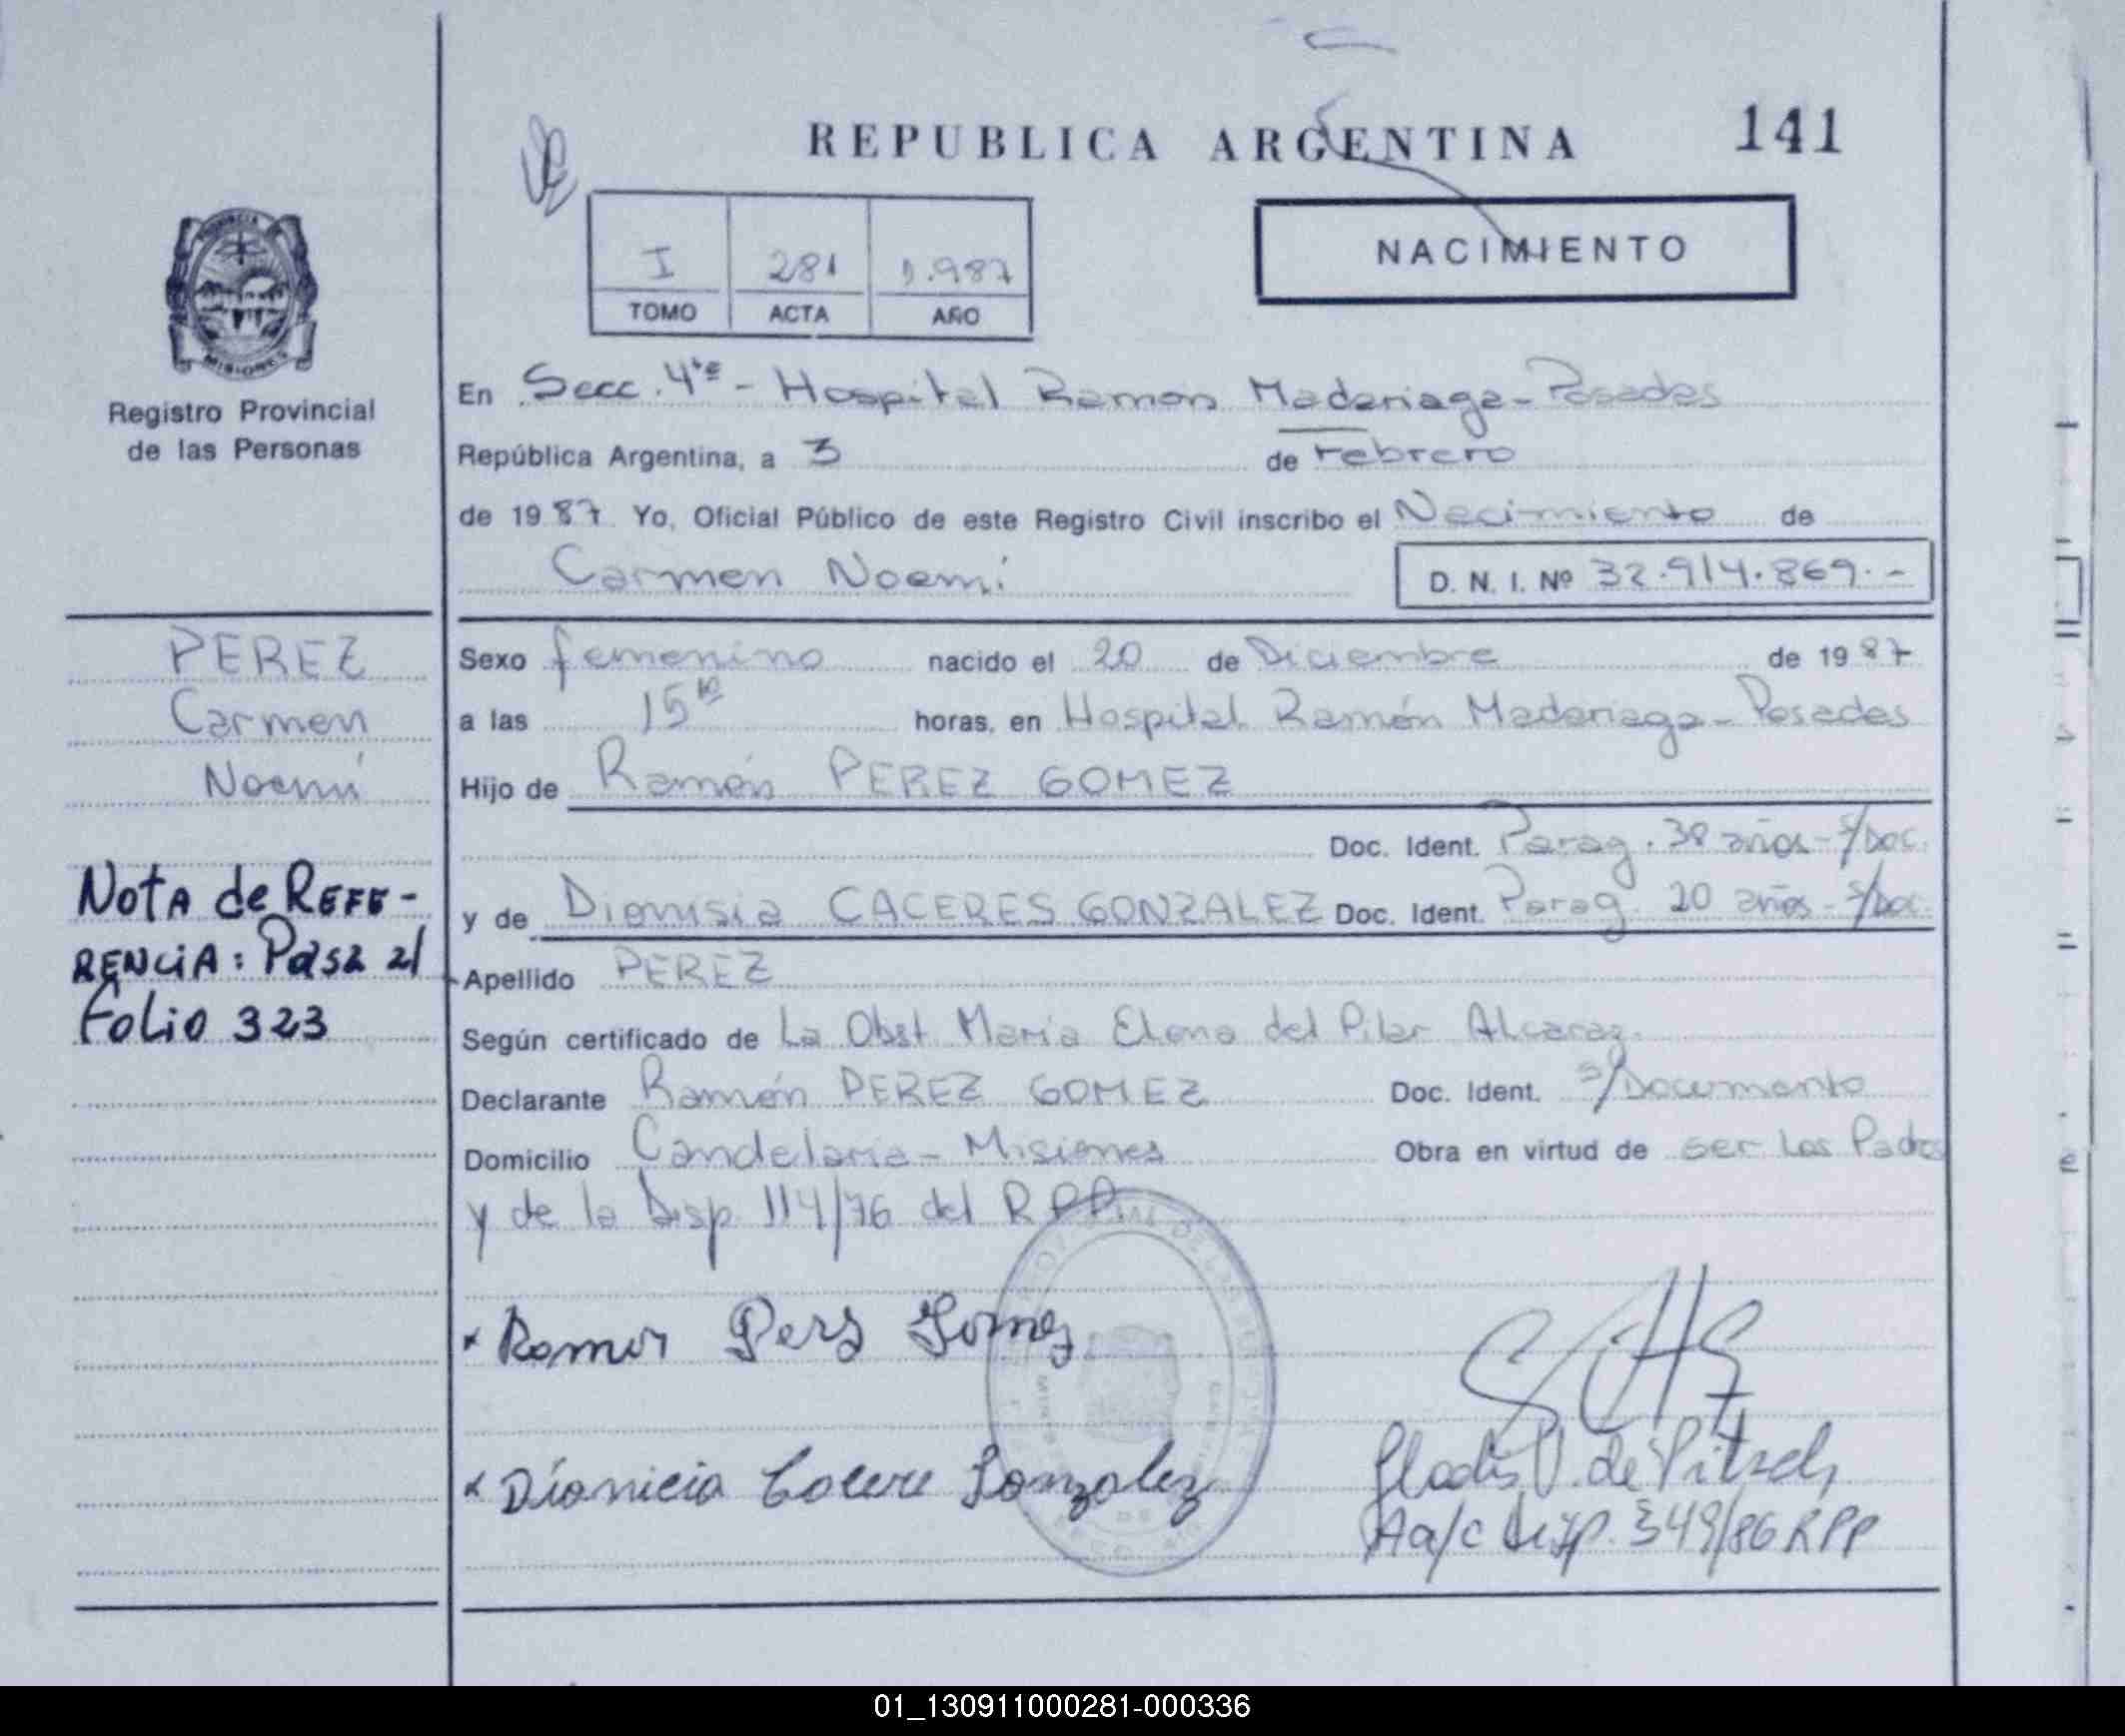 REPUBLICA ARGENTINA
141
I 281 1.987
TOMO ACTA AÑO
NACIMIENTO
PROVINCIA
MISIONES
Registro Provincial
de las Personas
En Secc. 4ta - Hospital Ramón Madariaga - Posadas
República Argentina, a 3 de Febrero
de 1987 Yo, Oficial Público de este Registro Civil inscribo el Nacimiento de
Carmen Noemí
D. N. I. Nº 32.914.869.-
PEREZ
Carmen
Noemí
Nota de REFE-
RENCIA: Pasa al
Folio 323
Sexo femenino nacido el 20 de Diciembre de 1987
a las 15 10 horas, en Hospital Ramón Madariaga - Posadas
Hijo de Ramón PEREZ GOMEZ
Doc. Ident. Parag. 38 años - s/Doc.
y de Dionisia CACERES GONZALEZ Doc. Ident. Parag. 20 años - s/Doc.
Apellido PEREZ
Según certificado de La Obst María Elena del Pilar Alcaraz.
Declarante Ramón PEREZ GOMEZ Doc. Ident. s/Documento
Domicilio Candelaria - Misiones Obra en virtud de ser Los Padres
y de la Disp. 114/76 del R.P.P.
x Ramon Perz Gomez
x Dionicia Cacere Gonzalez
Gladis V. de
A a/c Disp. 349/86 RPP
01_130911000281-000336